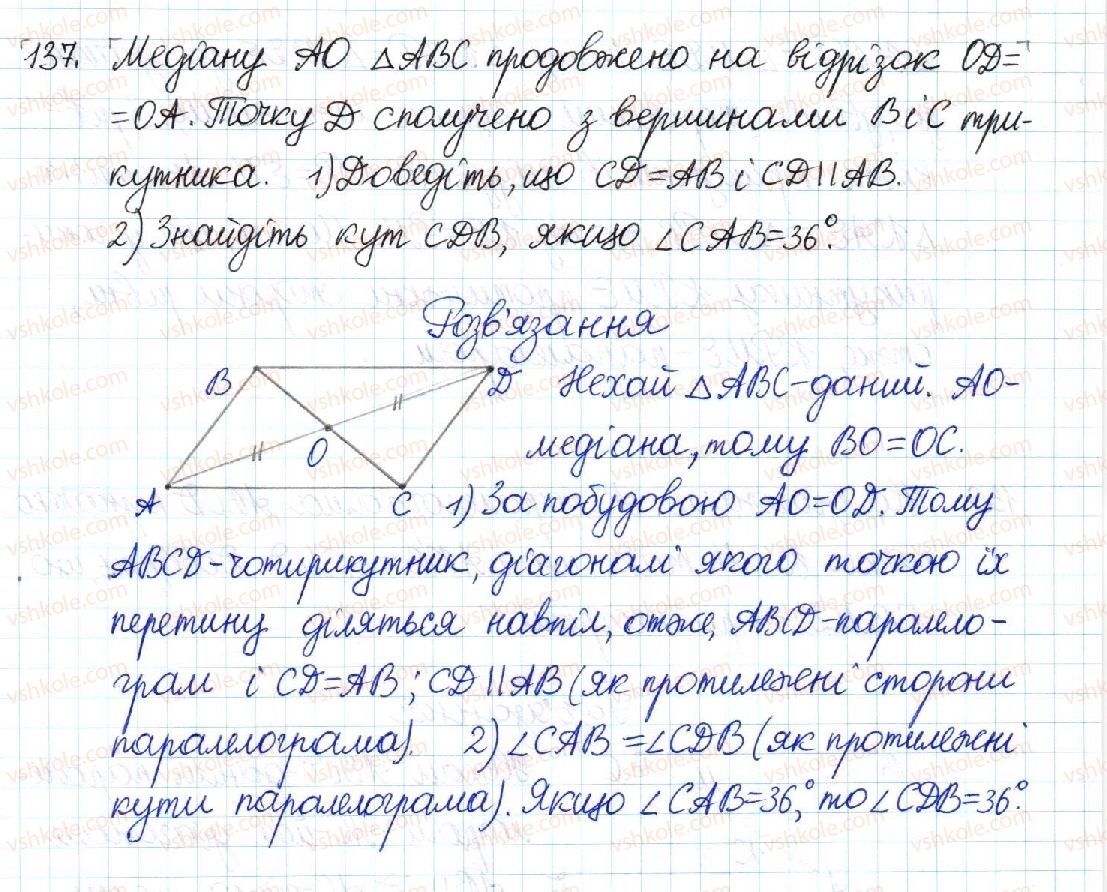 137. Медіану АО △АВС продовжено на відрізок OD=
=ОА. Точку D сполучено з вершинами В і С три-
кутника. 1) Доведіть, що CD=AB і CD||AB.
2) Знайдіть кут CDB, якщо ∠CAB=36°.
Розв'язання
B D Нехай △АВС-даний. АО-
O медіана, тому ВО=ОС.
A C 1) За побудовою АО=OD. Тому
ABCD-чотирикутник, діагоналі якого точкою їх
перетину діляться навпіл, отже, ABCD-паралело-
грам і CD=AB; CD||AB (як протилежні сторони
паралелограма). 2) ∠CAB=∠CDB (як протилежні
кути паралелограма). Якщо ∠CAB=36°, то ∠CDB=36°.
vshkole.com